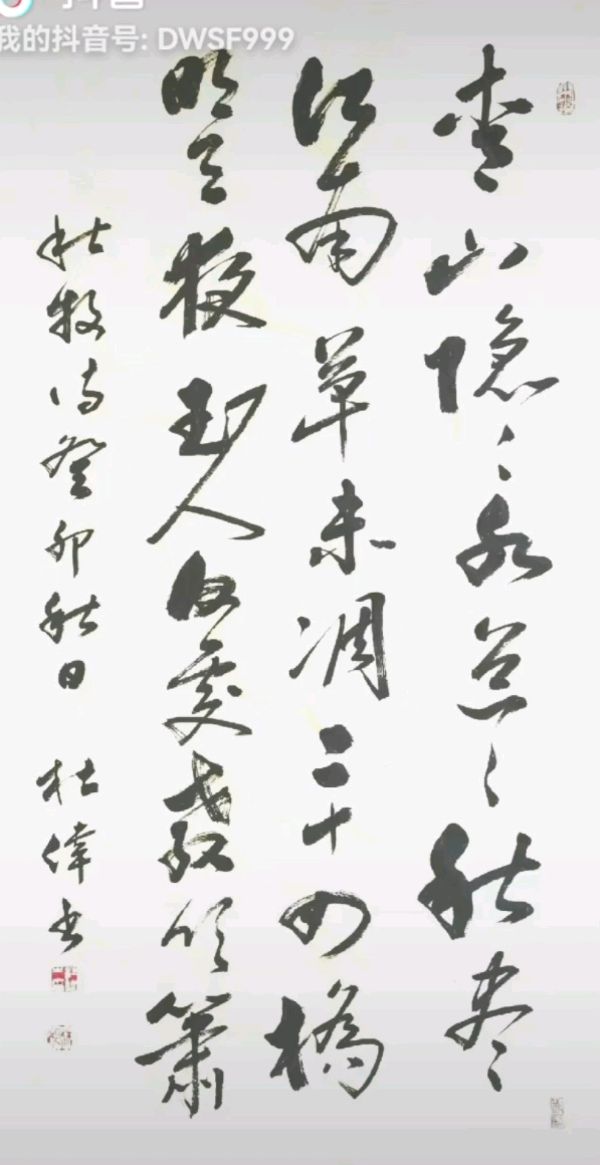 抖音
我的抖音号: DWSF999
青山隱々水迢々秋盡
江南草未凋二十四橋
明月夜玉人何處教吹簫
杜牧詩癸卯秋日 杜偉書